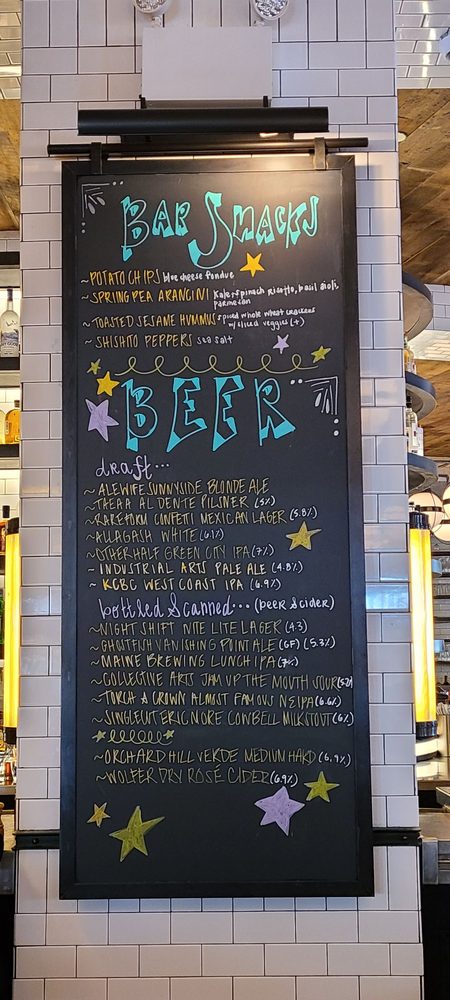 BAR SNACKS
~POTATO CHIPS blue cheese fondue
~SPRING PEA ARANCINI Kale + spinach risotto, basil aioli,
parmesan
~TOASTED SESAME HUMMUS spiced whole wheat crackers
w/ sliced veggies (+)
~ SHISHITO PEPPERS sea salt
BEER
draft...
~ALEWIFE SUNNYSIDE BLONDE ALE
~TALEA AL DENTE PILSNER (5%)
~RAREFORM CONFETTI MEXICAN LAGER (5.8%)
~ALLAGASH WHITE (6.1%)
~OTHER HALF GREEN CITY IPA (7%)
~ INDUSTRIAL ARTS PALE ALE (4.8%)
~ KCBC WEST COAST IPA (6.9%)
bottled & canned... (beer & cider)
~NIGHT SHIFT NITE LITE LAGER (4.3)
~GHOSTFISH VANISHING POINT ALE (GF) (5.3%)
~MAINE BREWING LUNCH IPA (7%)
~COLLECTIVE ARTS JAM UP THE MOUTH SOUR
~TORCH & CROWN ALMOST FAMOUS NEIPA (6.6%)
~SINGLECUT ERIC MORE COWBELL MILK STOUT (6%)
~ORCHARD HILL VERDE MEDIUM HARD (6.9%)
~WOLFER DRY ROSÉ CIDER (6.9%)